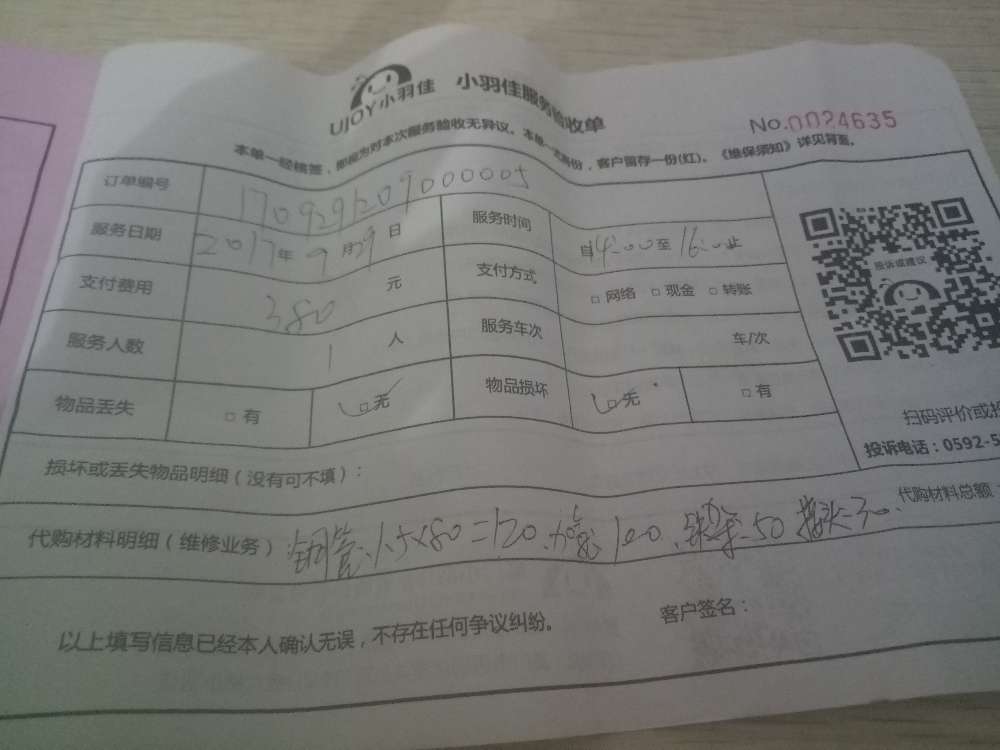 UJOY小羽佳 小羽佳服务验收单
No.0024635
本单一经核签，即视为对本次服务验收无异议。本单一式两份，客户留存一份(红)。《维保须知》详见背面。
订单编号 170929209000005
服务日期 2017年9月29日 服务时间 自14:00至16:00止
支付费用 380元 支付方式 □网络 □现金 □转账
服务人数 1人 服务车次 车/次
物品丢失 □有 □无 物品损坏 □无 □有
投诉或建议
扫码评价或投
投诉电话：0592-5
损坏或丢失物品明细（没有可不填）：
代购材料总额：
代购材料明细（维修业务） 铜管1.5×80=120.加氟100.铁架50接头30.
以上填写信息已经本人确认无误，不存在任何争议纠纷。
客户签名：